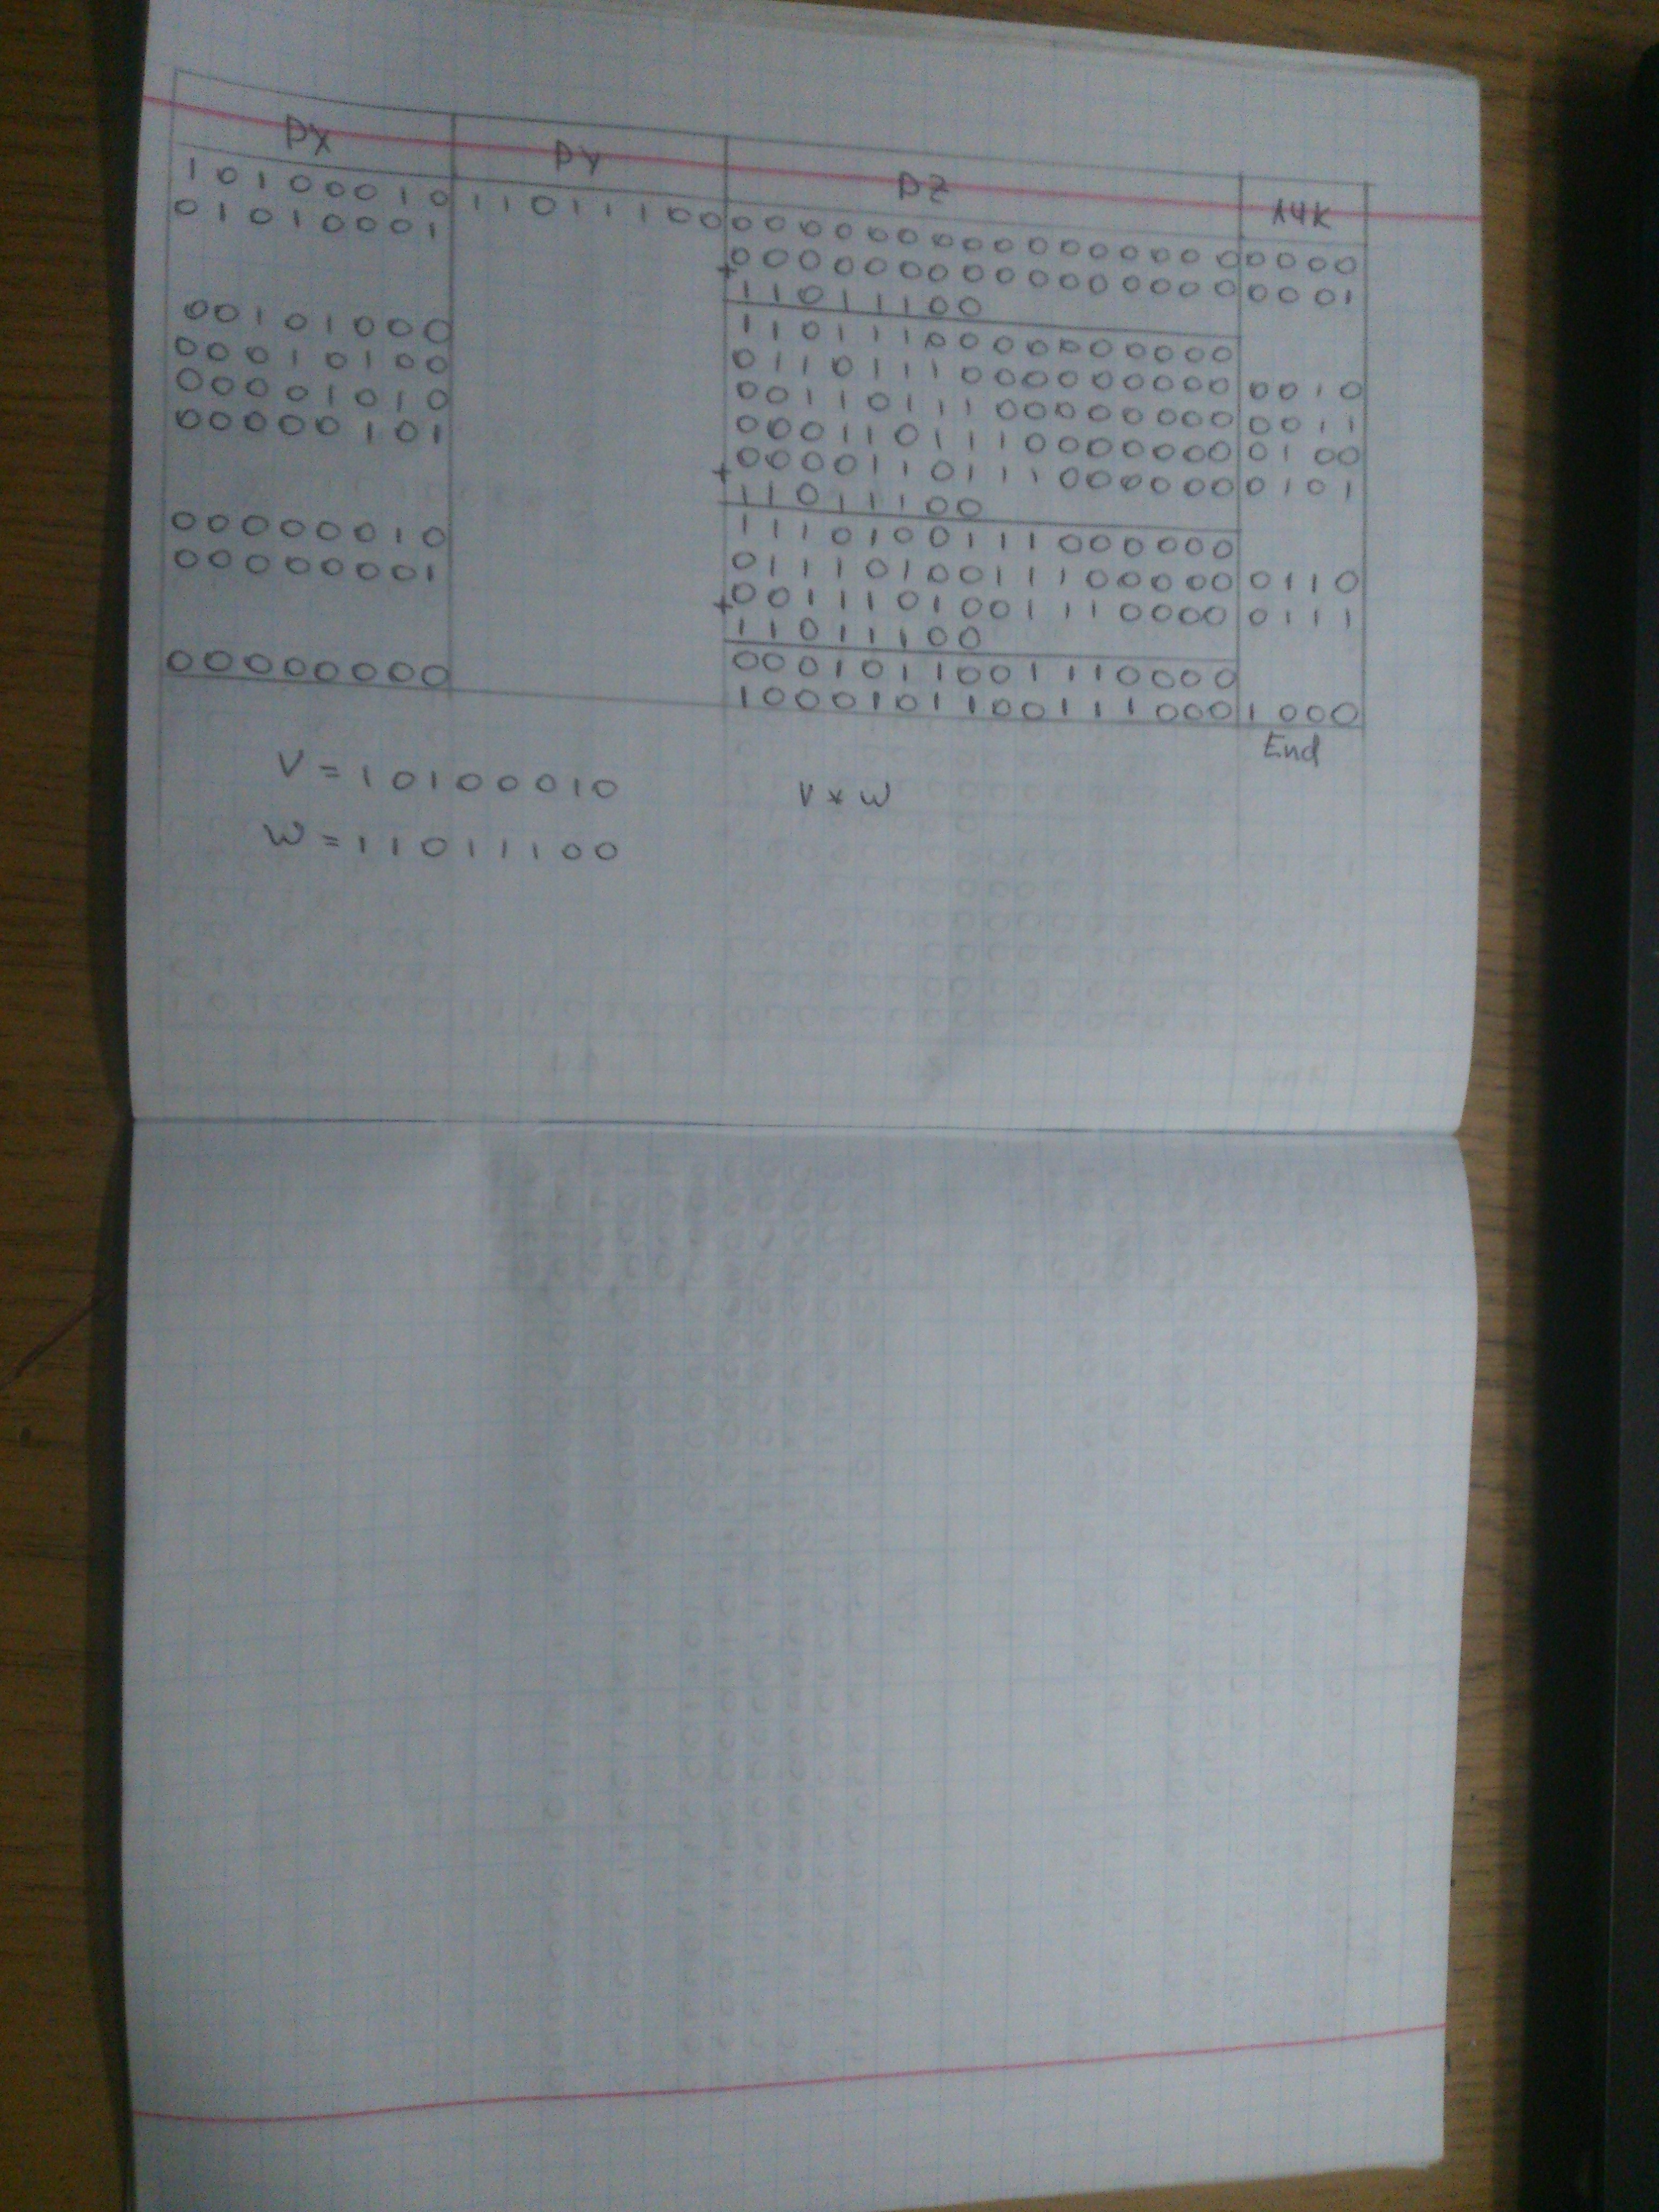 РХ РУ PZ ЛЧК
10100010 11011100 0000000000000000 0000
01010001 +0000000000000000 0001
11011100
00101000 1101110000000000
00010100 0110111000000000 0010
00001010 0011011100000000 0011
00000101 0001101110000000 0100
+0000110111000000 0101
11011100
00000010 1110100111000000
00000001 0111010011100000 0110
+0011101001110000 0111
11011100
00000000 0001011001110000
1000101100111000 1000
End
V = 10100010
V * W
W = 11011100